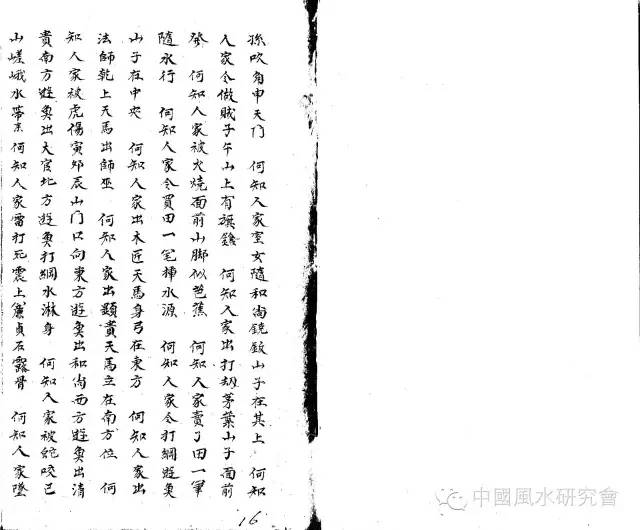 孫吹角申天門 何知人家室女隨和尚鐃鈸山子在其上 何知
人家令做賊子午山上有旗鎗 何知人家出打劫茅葉山子面前
發 何知人家被火燒面前山脚似芭蕉 何知人家賣了田一筆
隨水行 何知人家令買田一笔挿水源 何知人家令打綱遊魚
山子在中央 何知人家出木匠天馬身弓在東方 何知人家出
法師乾上天馬出師巫 何知人家出顯貴天馬立在南方位 何
知人家被虎傷寅邜辰山門口向東方遊魚出和尚西方遊魚出清
貴南方遊魚出大官北方遊魚打綱水淋身 何知人家被蛇咬巳
山嵯峨水帶來何知人家雷打死震上廉貞石露骨 何知人家墜
16
中國風水研究會